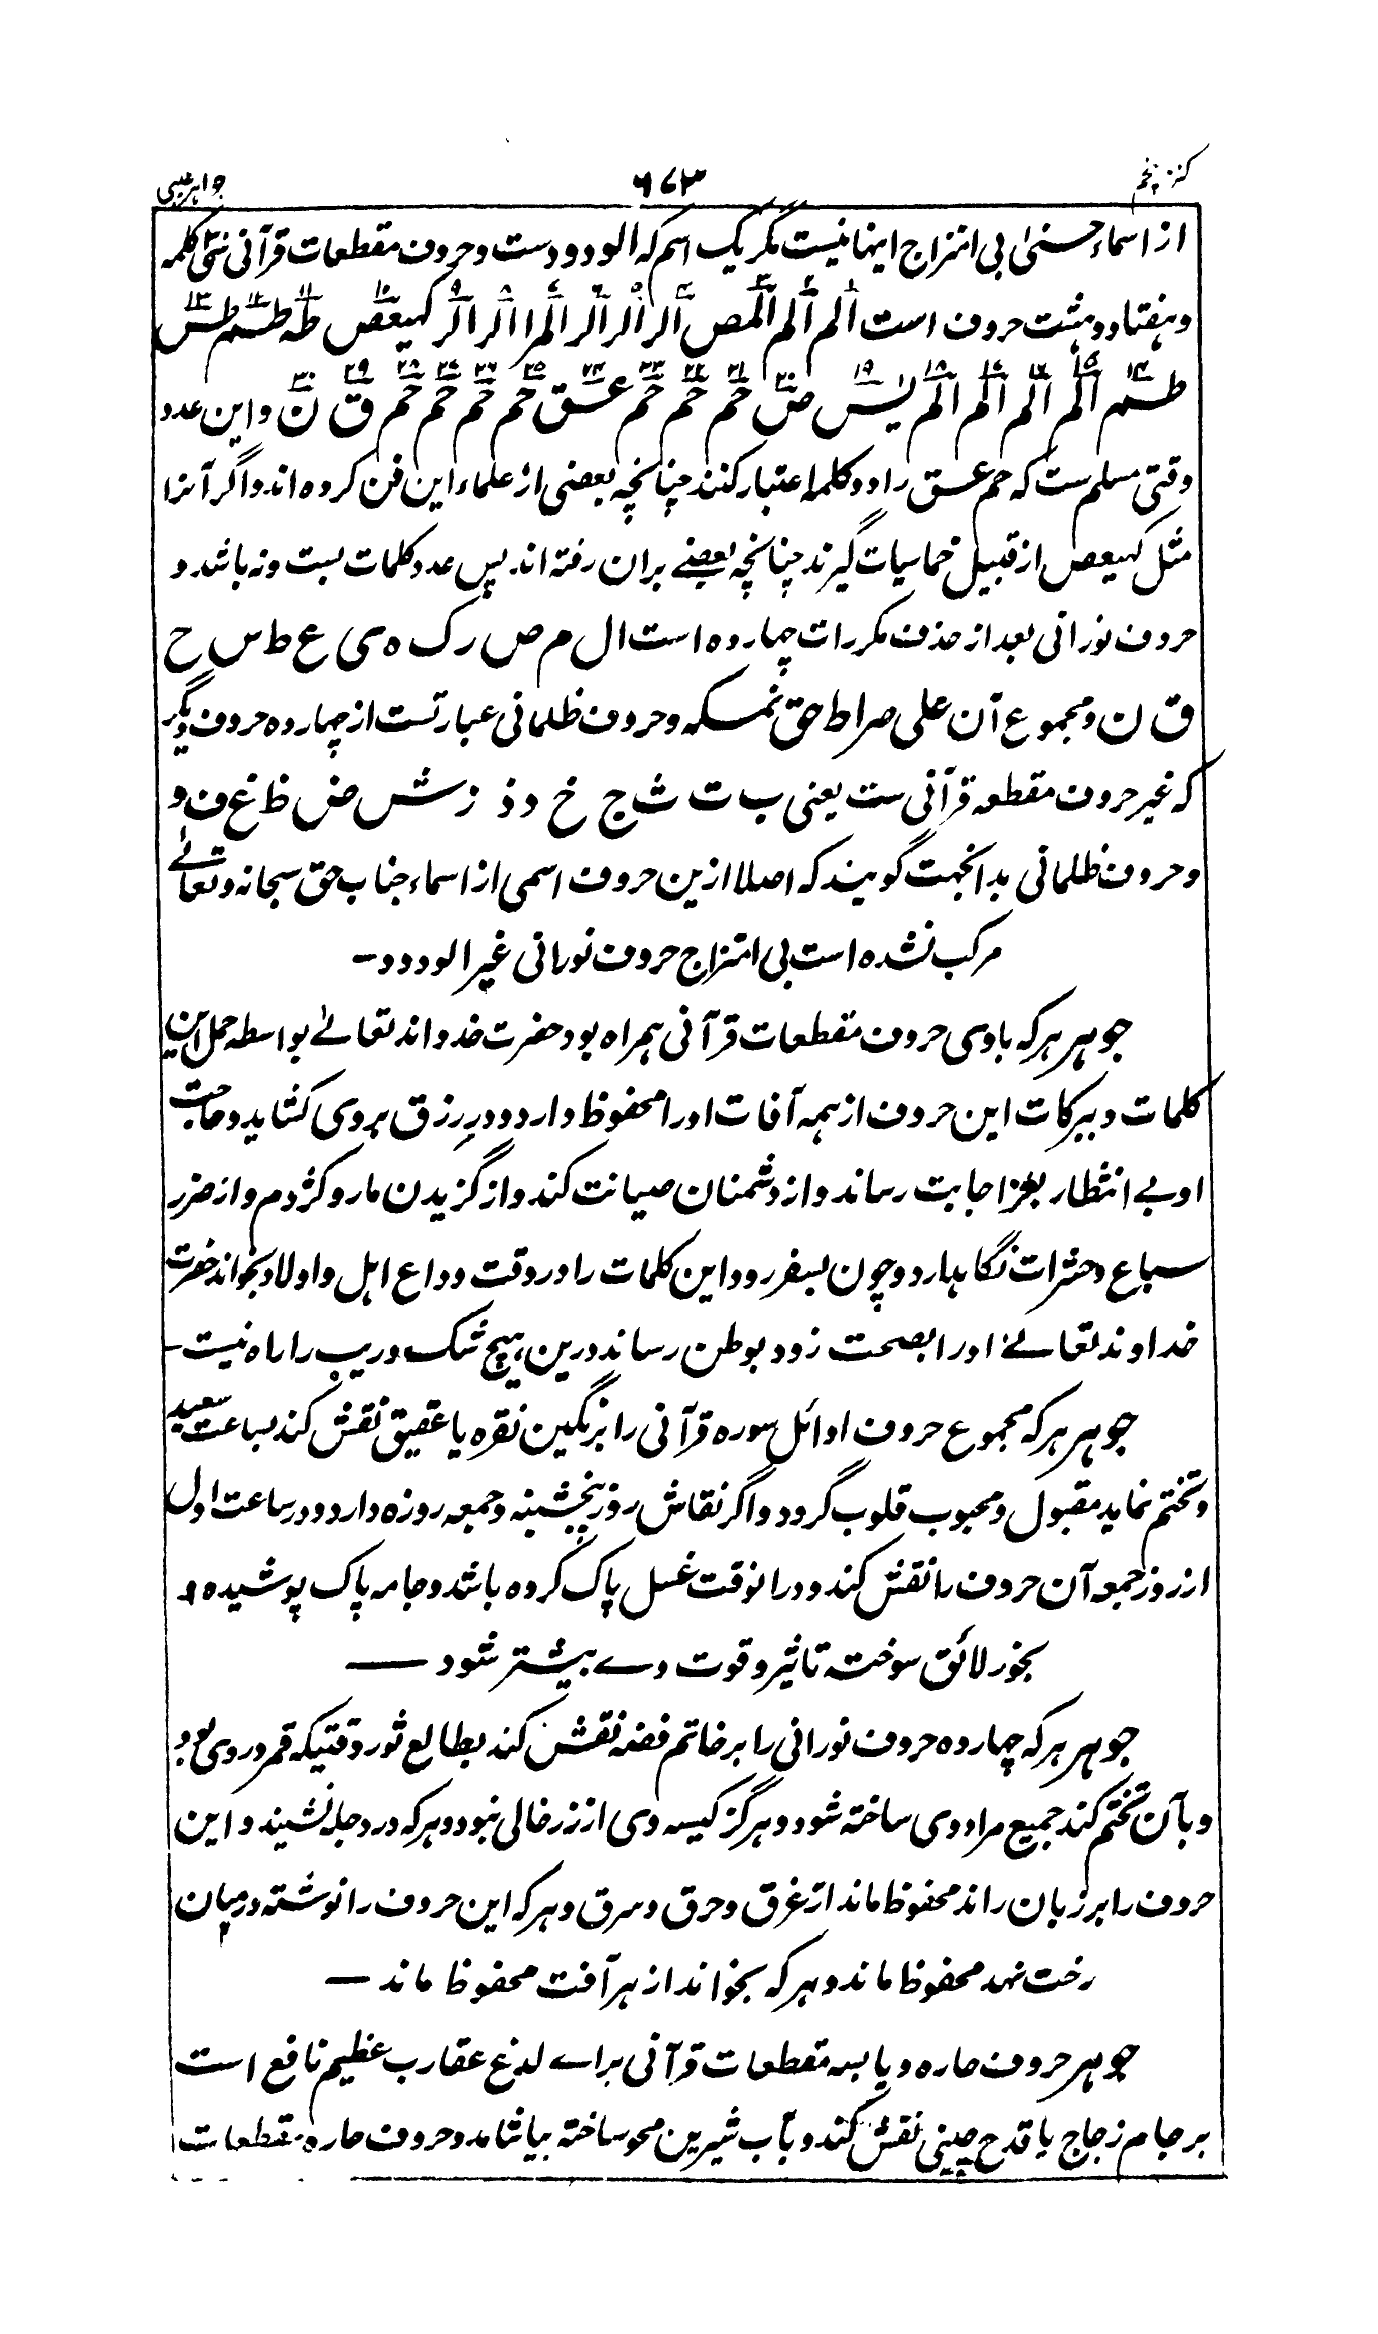 کنز پنجم
۶۷۳
جواهر غیبی
از اسماء حسنیٰ بی امتزاج اینها نیست مگر یک اسم که الودودست و حروف مقطعات قرآنی سی کلمه
و هفتاد و هشت حروف است الم الم المص الر الر الر المرا الر الر کهیعص طه طسم طس
طسم الم الم الم الم یس ص حم حم حم عسق حم حم حم حم ق ن و این عدد
وقتی مسلم ست که حم عسق را دو کلمه اعتبار کنند چنانچه بعضی از علماء این فن کرده اند و اگر آنرا
مثل کهیعص از قبیل خماسیات گیرند چنانچه بعضے بران رفته اند پس عدد کلمات بست و نه باشد و
حروف نورانی بعد از حذف مکررات چهارده است ال م ص ر ک ه ی ع ط س ح
ق ن و مجموع آن علی صراط حق نمسکه و حروف ظلمانی عبارتست از چهارده حروف دیگر
که غیر حروف مقطعه قرآنی ست یعنی ب ت ث ج خ د ذ ز ش ض ظ غ ف و
و حروف ظلمانی بدانجهت گویند که اصلا ازین حروف اسمی از اسماء جناب حق سبحانه و تعالے
مرکب نشده است بی امتزاج حروف نورانی غیر الودود -
جوهر هر که با وی حروف مقطعات قرآنی همراه بود حضرت خداوند تعالےٰ بواسطه حمل این
کلمات و ببرکات این حروف از همه آفات او را محفوظ دارد و درِ رزق بروی کشاید و حاجت
او بے انتظار بعز اجابت رساند و از دشمنان صیانت کند و از گزیدن مار و کژدم و از ضرر
سباع و حشرات نگاهدارد و چون بسفر رود این کلمات را در وقت وداع اهل و اولاد بخواند حضرت
خداوند تعالےٰ او را بصحت زود بوطن رساند درین هیچ شک و ریب را راه نیست -
جوهر هر که مجموع حروف اوائل سوره قرآنی را بر نگین نقره یا عقیق نقش کند بساعت سعید
و تختم نماید مقبول و محبوب قلوب گردد و اگر نقاش روز پنجشنبه و جمعه روزه دارد و در ساعت اول
از روز جمعه آن حروف را نقش کند و درانوقت غسل پاک کرده باشد و جامه پاک پوشیده و
بخور لائق سوخته تاثیر و قوت وے بیشتر شود —
جوهر هر که چهارده حروف نورانی را بر خاتم فضه نقش کند بطالع ثور وقتیکه قمر در وی بود
و بآن تختم کند جمیع مراد وی ساخته شود و هرگز کیسه وی از زر خالی نبود و هر که در دجله نشیند و این
حروف را بر زبان راند محفوظ ماند از غرق و حرق و سرق و هر که این حروف را نوشته در میان
رخت نهد محفوظ ماند و هر که بخواند از هر آفت محفوظ ماند —
جوهر حروف حاره و یابسه مقطعات قرآنی براے لدغ عقارب عظیم نافع است
بر جام زجاج یا قدح چینی نقش کند و بآب شیرین محو ساخته بیاشامد و حروف حاره مقطعات